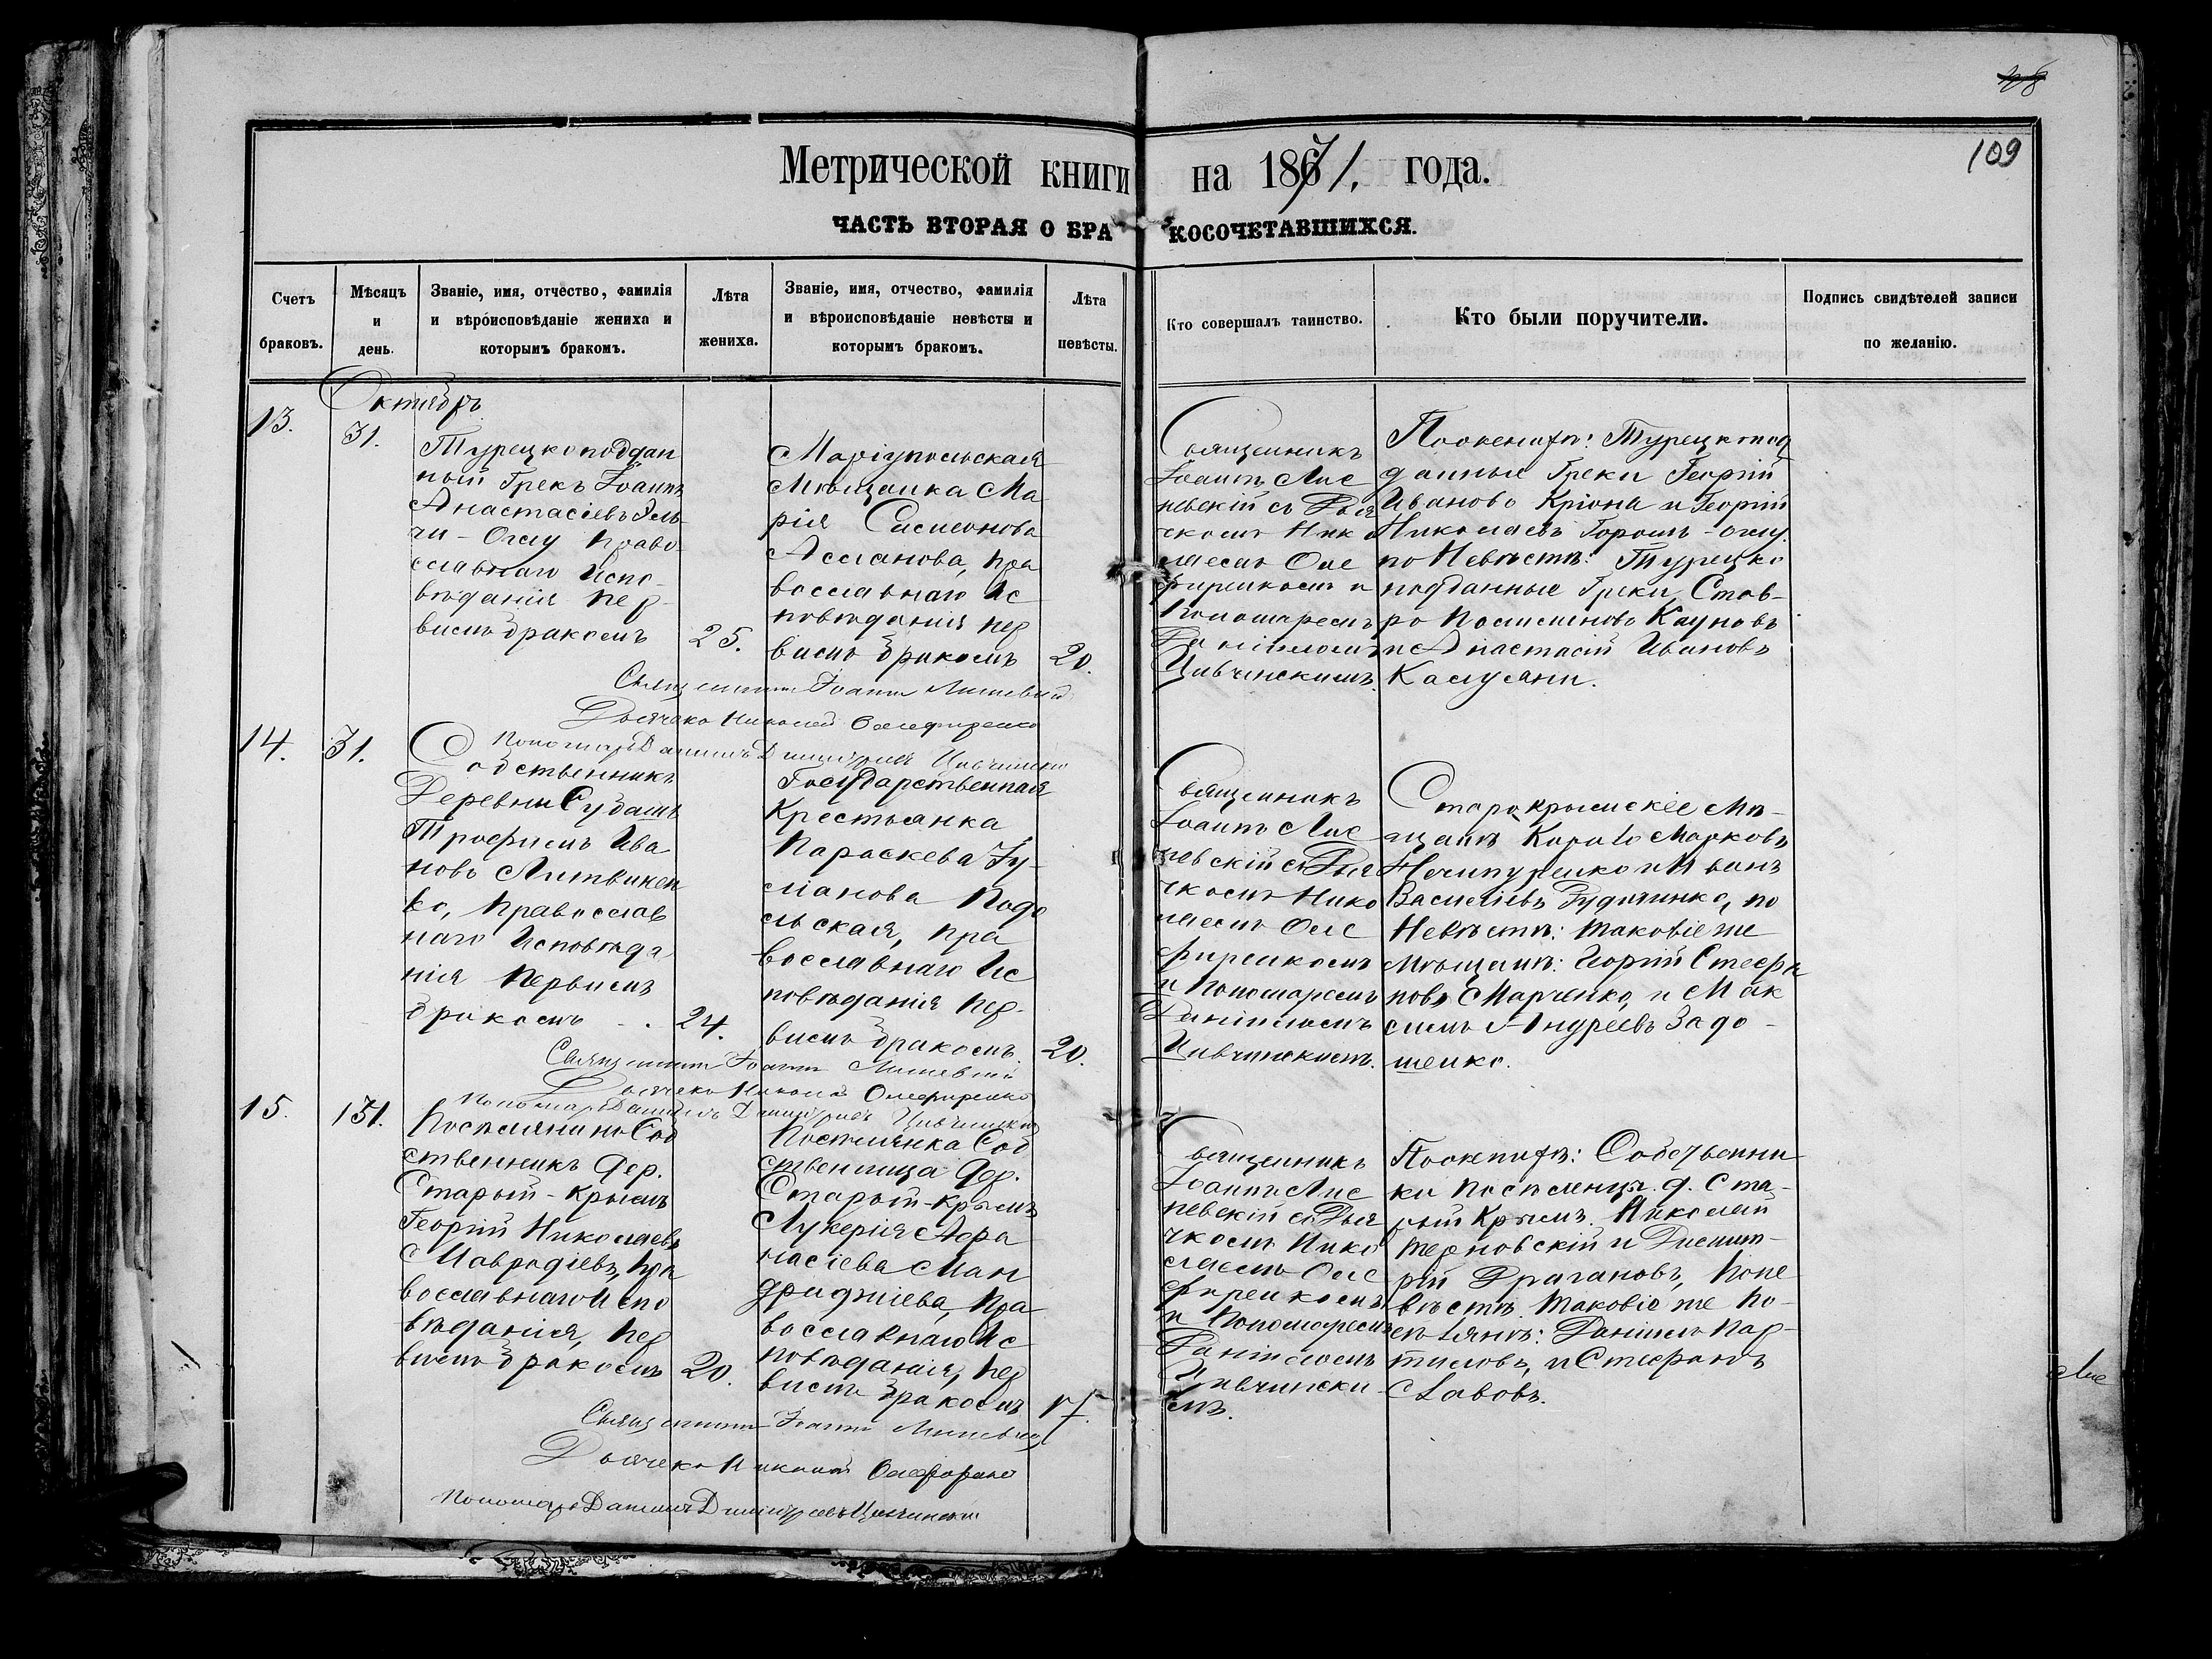 109
Метрической книги на 1871. года.
ЧАСТЬ ВТОРАЯ О БРАКОСОЧЕТАВШИХСЯ.
Счетъ браковъ.
Мѣсяцъ и день.
Званіе, имя, отчество, фамилія и вѣроисповѣданіе жениха и которымъ бракомъ.
Лѣта жениха.
Званіе, имя, отчество, фамилія и вѣроисповѣданіе невѣсты и которымъ бракомъ.
Лѣта невѣсты.
Кто совершалъ таинство.
Кто были поручители.
Подпись свидѣтелей записи по желанію.
Октябръ
13.
31.
Турецкоподдан
ный Грекъ Іоаннъ
Анастасіевъ Эль-
чи-Оглу Право-
славнаго Испо-
вѣданія пер-
вымъ бракомъ
25.
Маріупольская
Мѣщанка Ма
рія Симеонова
Асланова, пра
вославнаго Ис
повѣданія пер
вымъ бракомъ
20.
Священникъ
Іоаннъ Лис
невскій съ Дья
чкомъ Нико
лаемъ Оле
фиренкомъ и
Пономаремъ
Даніиломъ
Цивчинскимъ.
По женихѣ: Турецкопод
данные Греки Георгій
Ивановъ Кріона и Георгій
Николаевъ Горошъ-оглу.
по Невѣстѣ: Турецко
подданные Греки, Став-
ро Каунова
и Анастасій Ивановъ
Каслусяни.
Священникъ Іоаннъ Лисневскій
Дьячекъ Николай Олефиренко
Пономарь Даніилъ Димитріевъ Цивчинскій
14.
31.
Собственникъ
Деревни Судашъ
Трофимъ Ива
новъ Литвинен
ко, Православ
наго Исповѣда
нія первымъ
бракомъ
24.
Государственная
Крестьянка
Параскева Іу-
ліанова Подо
льская, пра
вославнаго Ис
повѣданія пер-
вымъ бракомъ.
20.
Священникъ
Іоаннъ Лис
невскій съ Дья
чкомъ Нико
лаемъ Оле
фиренкомъ
и Пономаремъ
Даніиломъ
Цивчинскимъ.
Старокрымскіе Мѣ-
щане Марковъ
Нечипуренко и Иванъ
Василіевъ Зудиченко, по
Невѣстѣ: таковіе же
Мѣщане: Георгій Стефа
новъ Марченко, и Мак
симъ Андреевъ Задо-
шенко.
Священникъ Іоаннъ Лисневскій
Дьячекъ Николай Олефиренко
Пономарь Даніилъ Димитріевъ Цивчинскій
15.
31.
Поселянинъ Соб
ственникъ дер.
Старый-Крымъ
Георгій Николаевъ
Мавродіевъ, пра
вославнаго Испо
вѣданія, пер
вымъ бракомъ
20.
Поселянка Соб
ственница дер.
Старый-Крымъ
Лукерія Афа
насіева Ман
драджіева, пра
вославнаго Ис
повѣданія, пер
вымъ бракомъ
17.
Священникъ
Іоаннъ Лис
невскій съ Дья
чкомъ Нико
лаемъ Оле
фиренкомъ
и Пономаремъ
Даніиломъ
Цивчински
мъ.
По женихѣ: Собственни
ки поселенцы д. Ста-
рый Крымъ. Николай
Терновскій и Димит-
рій Драгановъ, по не
вѣстѣ таковіе же по-
селяне: Даніилъ Пар-
тиловъ, и Стефанъ
Славовъ.
Священникъ Іоаннъ Лисневскій
Дьячекъ Николай Олефиренко
Пономарь Даніилъ Димитріевъ Цивчинскій
Лис